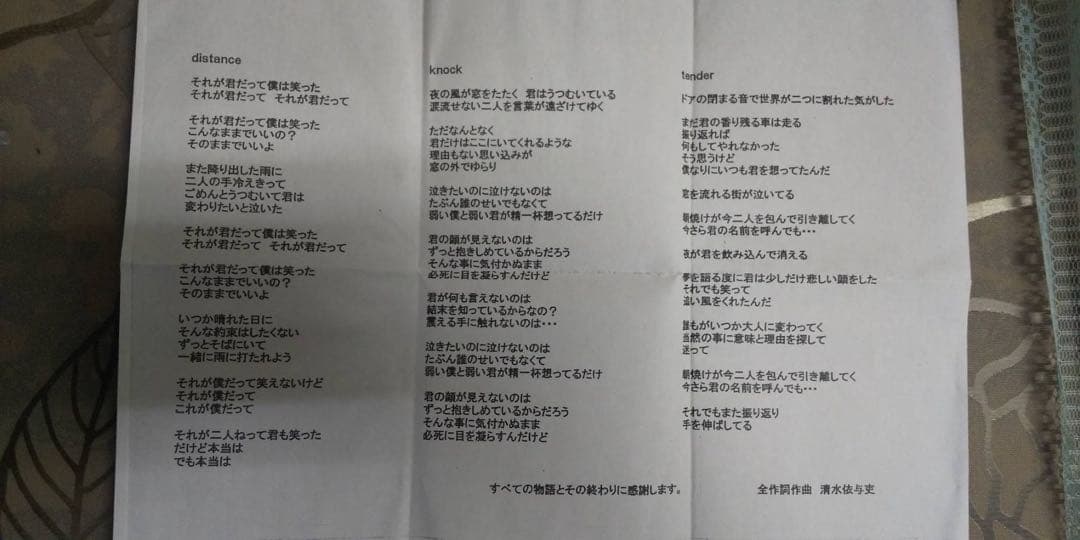 distance
それが君だって僕は笑った
それが君だって それが君だって
それが君だって僕は笑った
こんなままでいいの？
そのままでいいよ
また降り出した雨に
二人の手冷えきって
ごめんとうつむいて君は
変わりたいと泣いた
それが君だって僕は笑った
それが君だって それが君だって
それが君だって僕は笑った
こんなままでいいの？
そのままでいいよ
いつか晴れた日に
そんな約束はしたくない
ずっとそばにいて
一緒に雨に打たれよう
それが僕だって笑えないけど
それが僕だって
これが僕だって
それが二人ねって君も笑った
だけど本当は
でも本当は
knock
夜の風が窓をたたく 君はうつむいている
涙流せない二人を言葉が遠ざけてゆく
ただなんとなく
君だけはここにいてくれるような
理由もない思い込みが
窓の外でゆらり
泣きたいのに泣けないのは
たぶん誰のせいでもなくて
弱い僕と弱い君が精一杯想ってるだけ
君の顔が見えないのは
ずっと抱きしめているからだろう
そんな事に気付かぬまま
必死に目を凝らすんだけど
君が何も言えないのは
結末を知っているからなの？
震える手に触れないのは・・・
泣きたいのに泣けないのは
たぶん誰のせいでもなくて
弱い僕と弱い君が精一杯想ってるだけ
君の顔が見えないのは
ずっと抱きしめているからだろう
そんな事に気付かぬまま
必死に目を凝らすんだけど
tender
ドアの閉まる音で世界が二つに割れた気がした
まだ君の香り残る車は走る
振り返れば
何もしてやれなかった
そう思うけど
僕なりにいつも君を想ってたんだ
窓を流れる街が泣いてる
朝焼けが今二人を包んで引き離してく
今さら君の名前を呼んでも・・・
夜が君を飲み込んで消える
夢を語る度に君は少しだけ悲しい顔をした
それでも笑って
追い風をくれたんだ
誰もがいつか大人に変わってく
当然の事に意味と理由を探して
迷って
朝焼けが今二人を包んで引き離してく
今さら君の名前を呼んでも・・・
それでもまた振り返り
手を伸ばしてる
すべての物語とその終わりに感謝します。
全作詞作曲 清水依与吏